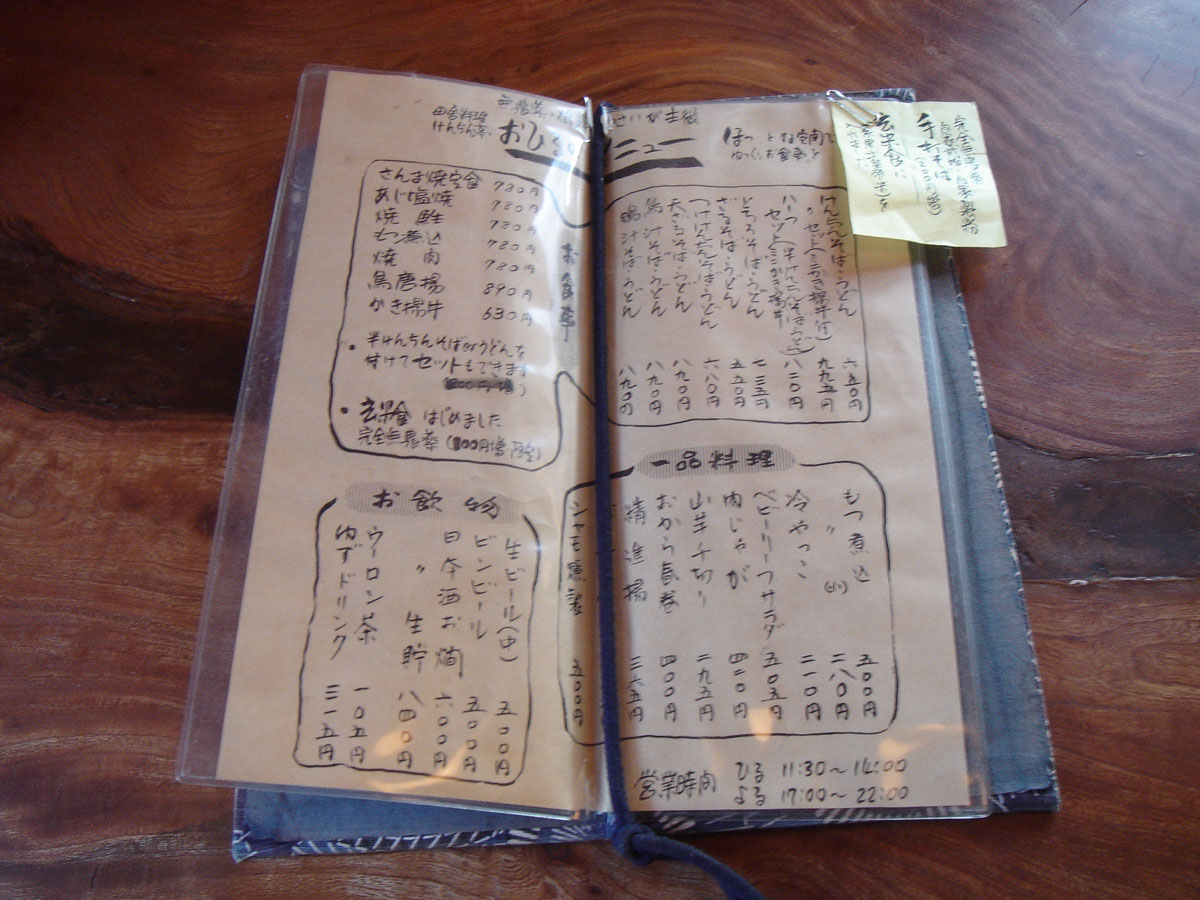 田舎料理
けんちん亭
おひる
ニュー
さいが主役
ゆっくりお食事を
完全無農薬
手打そば
さんま焼定食 780円
あじ塩焼 780円
焼鮭 780円
もつ煮込 780円
焼肉 780円
鳥唐揚 890円
かき揚丼 630円
・半けんちんそばorうどんを
付けてセットもできます
・玄米食はじめました
完全無農薬(100円増・限定)
お食事
けんちんそば・うどん 六五〇円
〃 セット(ミニかき揚丼付) 九九五円
八一〇円
セット(半けんちんそばorうどん
ミニかき揚丼) 七三五円
とろろそば・うどん
ざるそば・うどん 五五〇円
つけけんちんそば・うどん 六八〇円
天ざるそば・うどん 八九〇円
鳥汁そば・うどん 八九〇円
鴨汁そば・うどん 八九〇円
一品料理
もつ煮込 五〇〇円
〃 (小) 二八〇円
冷やっこ 二一〇円
ベビーリーフサラダ 五〇五円
肉じゃが 四二〇円
山芋千切り 二九五円
おから春巻 四〇〇円
精進揚 三六五円
シャモ燻製 五〇〇円
お飲物
生ビール(中) 五〇〇円
ビンビール 五〇〇円
日本酒お燗 六〇〇円
〃 生貯 八四〇円
ウーロン茶 一〇五円
ゆずドリンク 三一五円
営業時間 ひる 11:30〜14:00
よる 17:00〜22:00